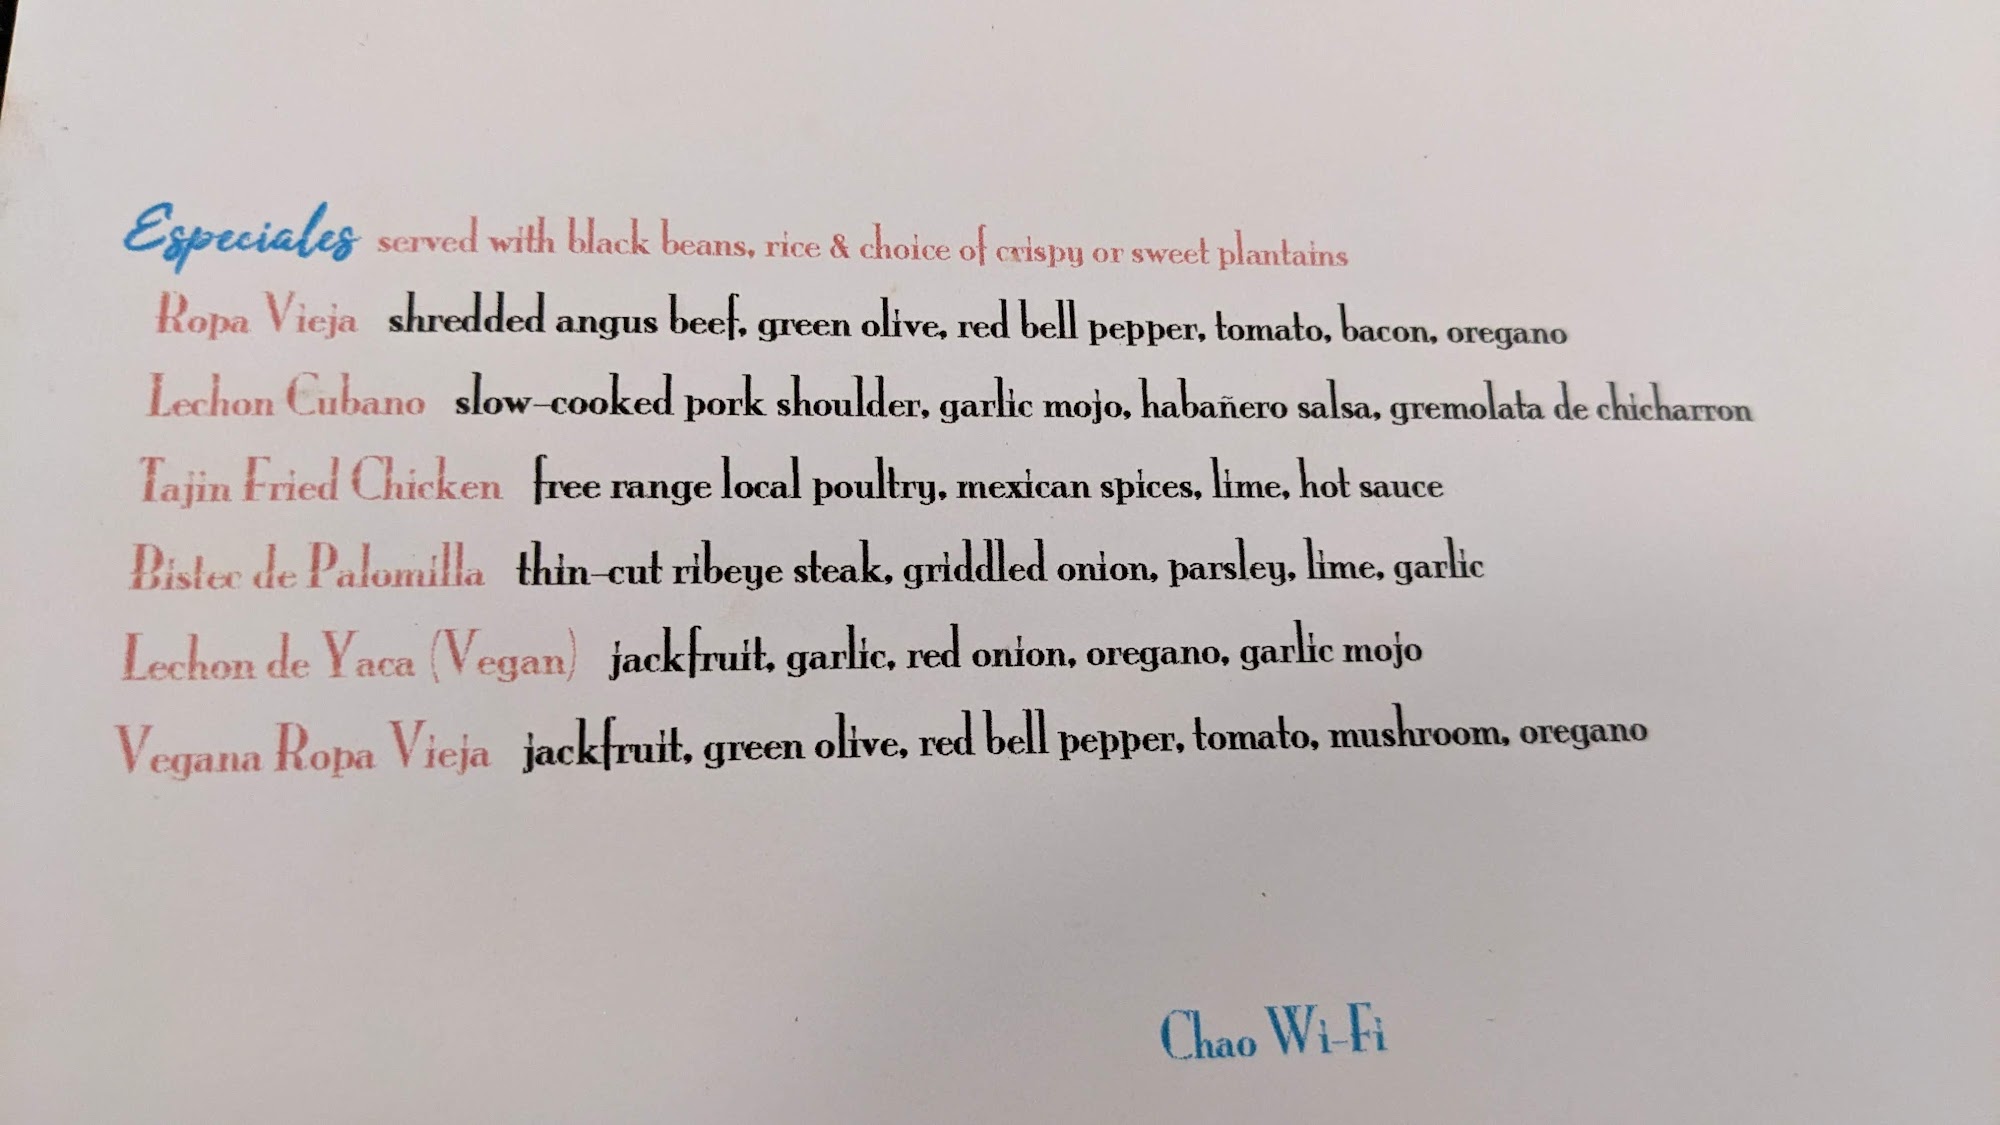 Especiales served with black beans, rice & choice of crispy or sweet plantains
Ropa Vieja shredded angus beef, green olive, red bell pepper, tomato, bacon, oregano
Lechon Cubano slow-cooked pork shoulder, garlic mojo, habañero salsa, gremolata de chicharron
Tajin Fried Chicken free range local poultry, mexican spices, lime, hot sauce
Bistec de Palomilla thin-cut ribeye steak, griddled onion, parsley, lime, garlic
Lechon de Yaca (Vegan) jackfruit, garlic, red onion, oregano, garlic mojo
Vegana Ropa Vieja jackfruit, green olive, red bell pepper, tomato, mushroom, oregano
Chao Wi-Fi